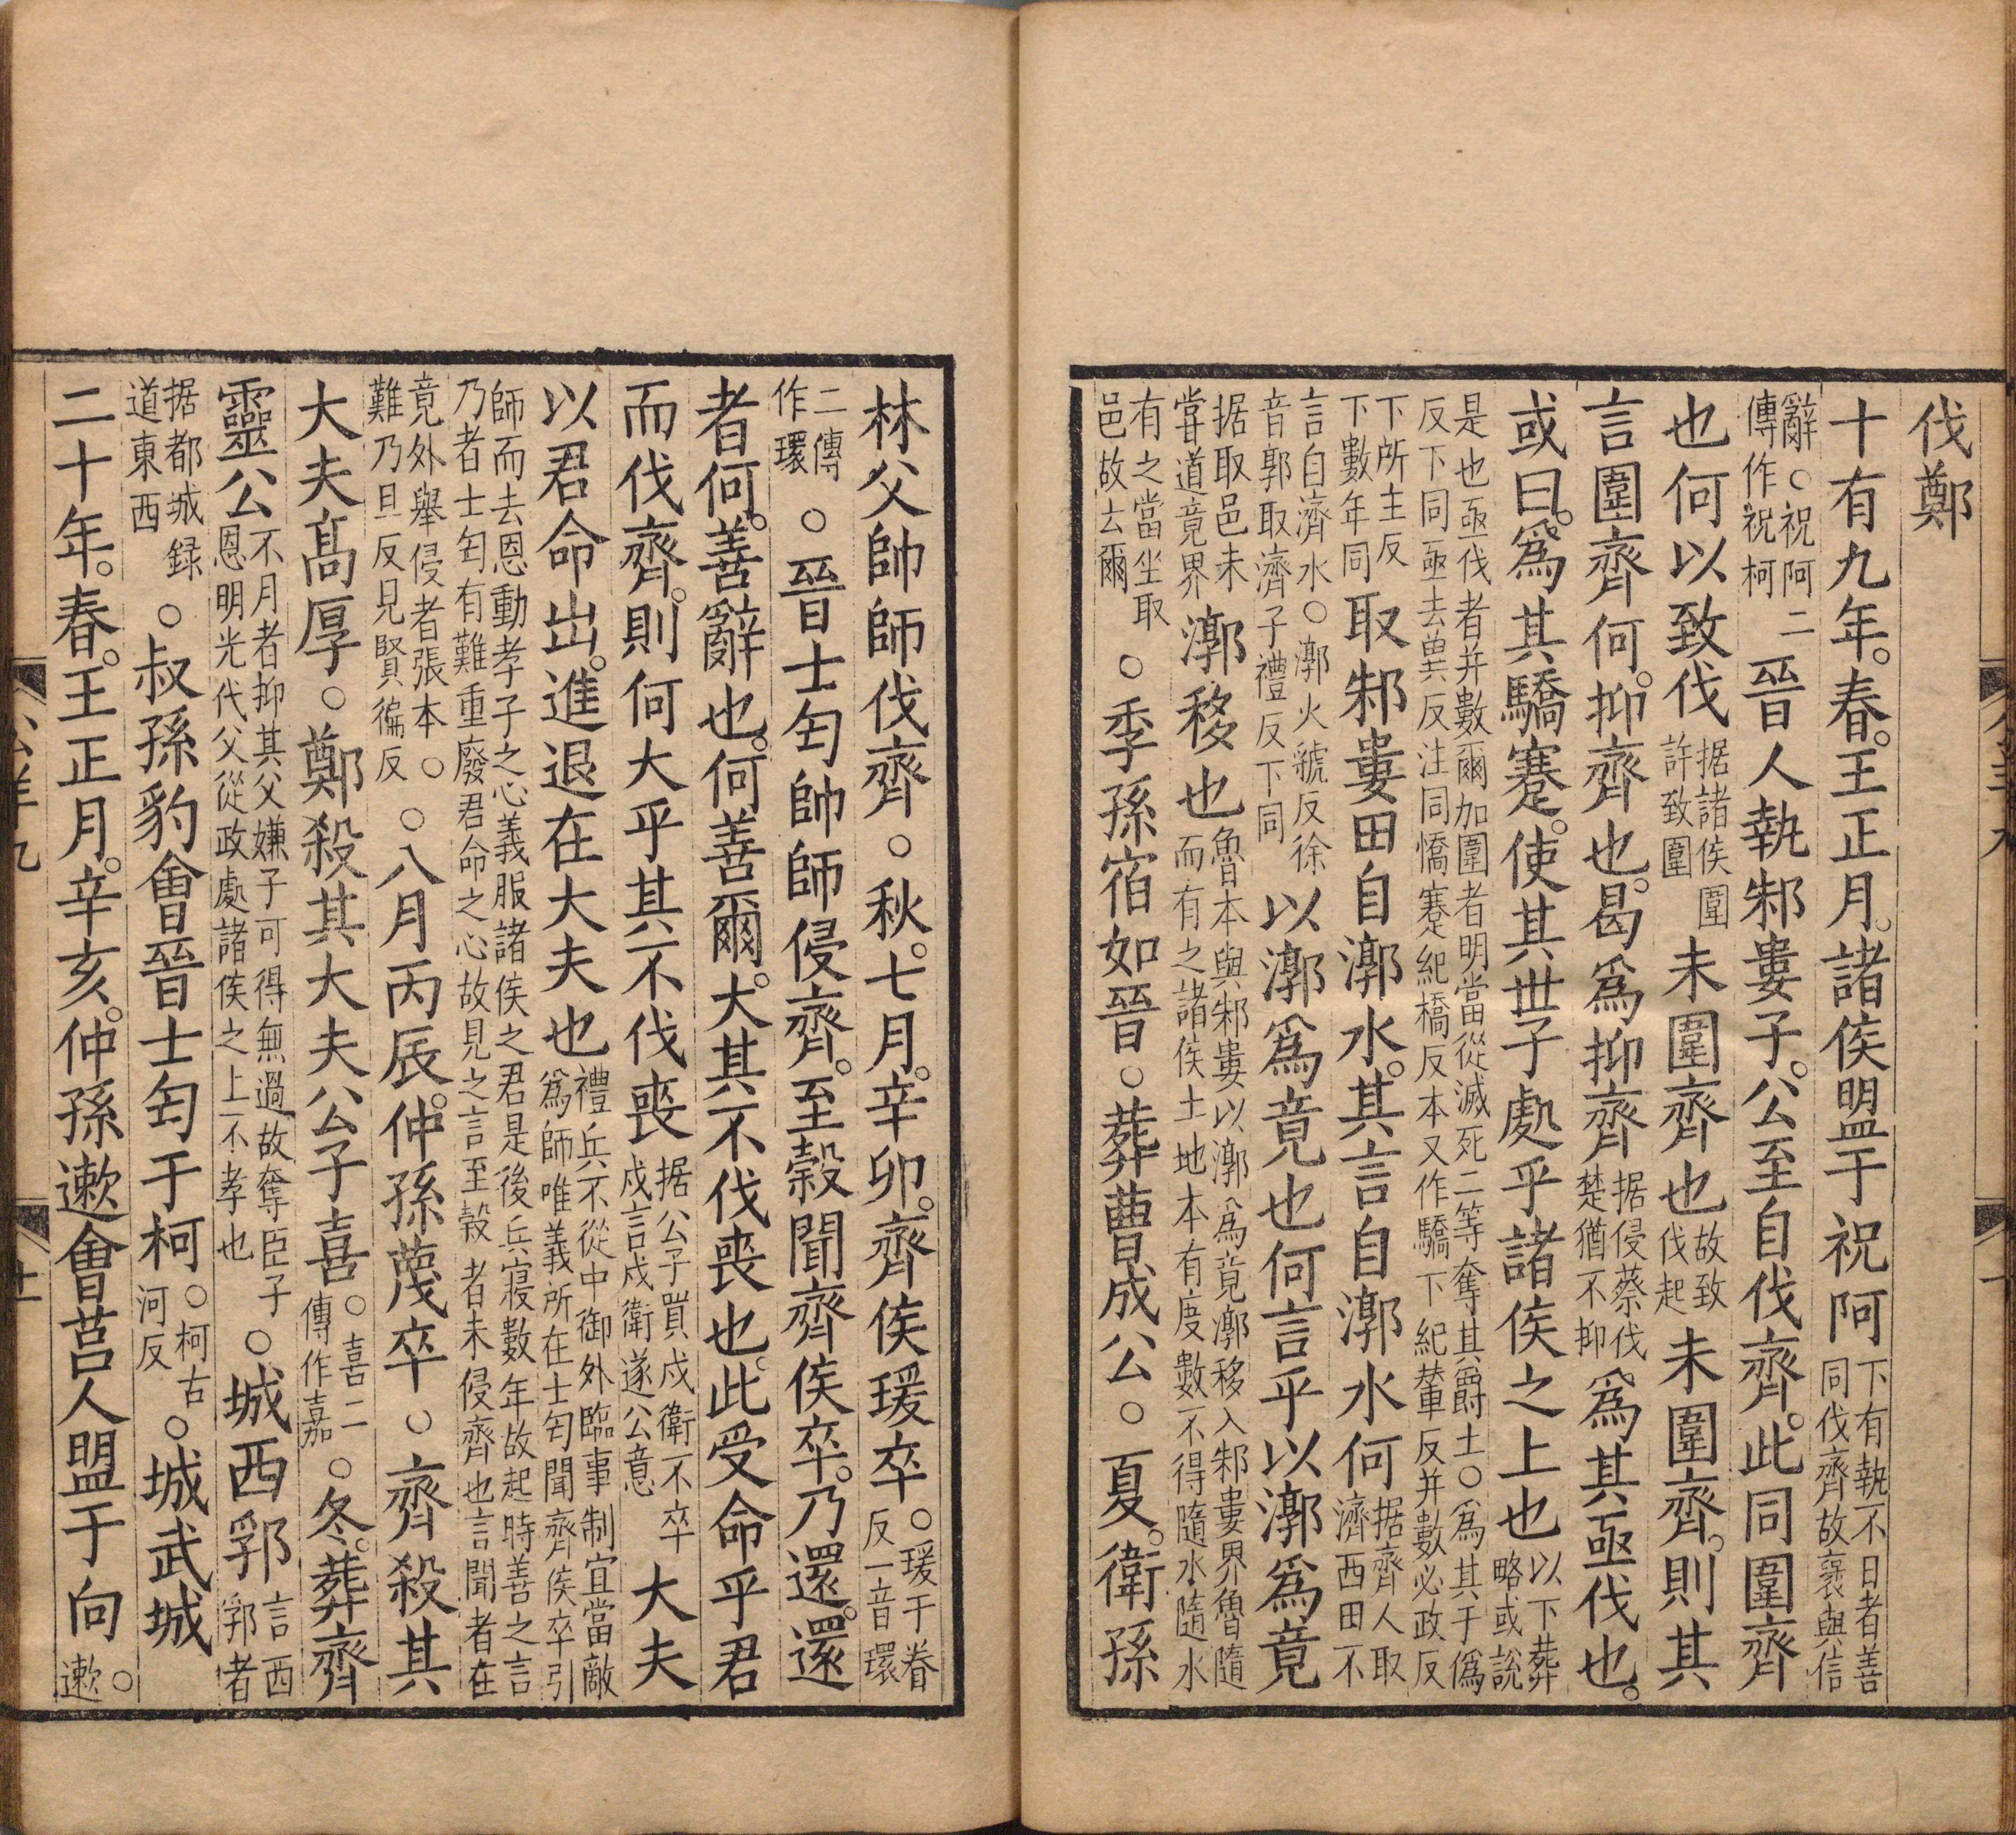 伐鄭
十有九年。春。王正月。諸侯盟于祝阿下有執不日者善同伐齊故褒與信
辭○祝阿二傳作祝柯晉人執邾婁子。公至自伐齊。此同圍齊
也何以致伐据諸侯圍許致圍未圍齊也故致伐起未圍齊。則其
言圍齊何。抑齊也。曷爲抑齊据侵蔡伐楚猶不抑爲其亟伐也。
或曰。爲其驕蹇。使其世子處乎諸侯之上也以下葬略或説
是也亟伐者并數爾加圍者明當從滅死二等奪其爵土○爲其于僞反下同亟去異反注同憍蹇紀橋反本又作驕下紀輦反并數必政反
下所主反下數年同取邾婁田自漷水。其言自漷水何据齊人取濟西田不
言自濟水○漷火虢反徐音郭取濟子禮反下同以漷爲竟也何言乎以漷爲竟
据取邑未嘗道竟界漷移也魯本與邾婁以漷爲竟漷移入邾婁界魯隨而有之諸侯土地本有度數不得隨水隨水
有之當坐取邑故云爾○季孫宿如晉○葬曹成公○夏。衛孫
林父帥師伐齊○秋。七月。辛卯。齊侯瑗卒○瑗于眷反一音環
二傳作環○晉士匄帥師侵齊。至穀聞齊侯卒。乃還。還
者何。善辭也。何善爾。大其不伐喪也。此受命乎君
而伐齊。則何大乎其不伐喪据公子買戍衛不卒戍言戍衛遂公意大夫
以君命出。進退在大夫也禮兵不從中御外臨事制宜當敵爲師唯義所在士匄聞齊侯卒引
師而去恩動孝子之心義服諸侯之君是後兵寢數年故起時善之言乃者士匄有難重廢君命之心故見之言至穀者未侵齊也言聞者在
竟外舉侵者張本○難乃旦反見賢徧反○八月丙辰。仲孫蔑卒○齊殺其
大夫高厚○鄭殺其大夫公子喜○喜二傳作嘉○冬。葬齊
靈公不月者抑其父嫌子可得無過故奪臣子恩明光代父從政處諸侯之上不孝也○城西郛言西郛者
据都城録道東西○叔孫豹會晉士匄于柯○柯古河反○城武城
二十年。春。王正月。辛亥。仲孫遬會莒人盟于向○遬
公羊九
十
公羊九
十一